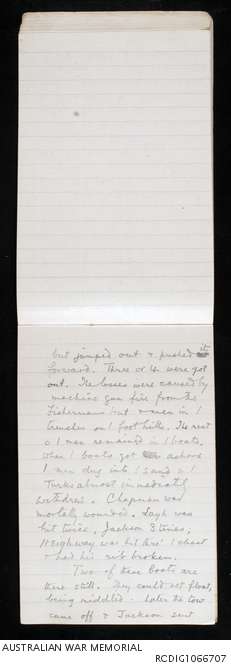 but jumped out & pushed it
forward. Three or 4 were got
out. The losses were caused by
machine gun fire from the
Fishermans hut & men in /
trenches on / foot hills. The rest
o / men remained in / boats.
When / boats got ashore
/ men dug into / sand & /
Turks almost immediately
withdrew. Chapman was
mortally wounded. Layh was
hit twice, Jackson 3 times,
Heighway was hit thro' / chest
& had his rib broken.
Two of these boats are
there still. They could not float,
being riddled. Later the tow
came off & Jackson sent
AUSTRALIAN WAR MEMORIAL
RCDIG1066707